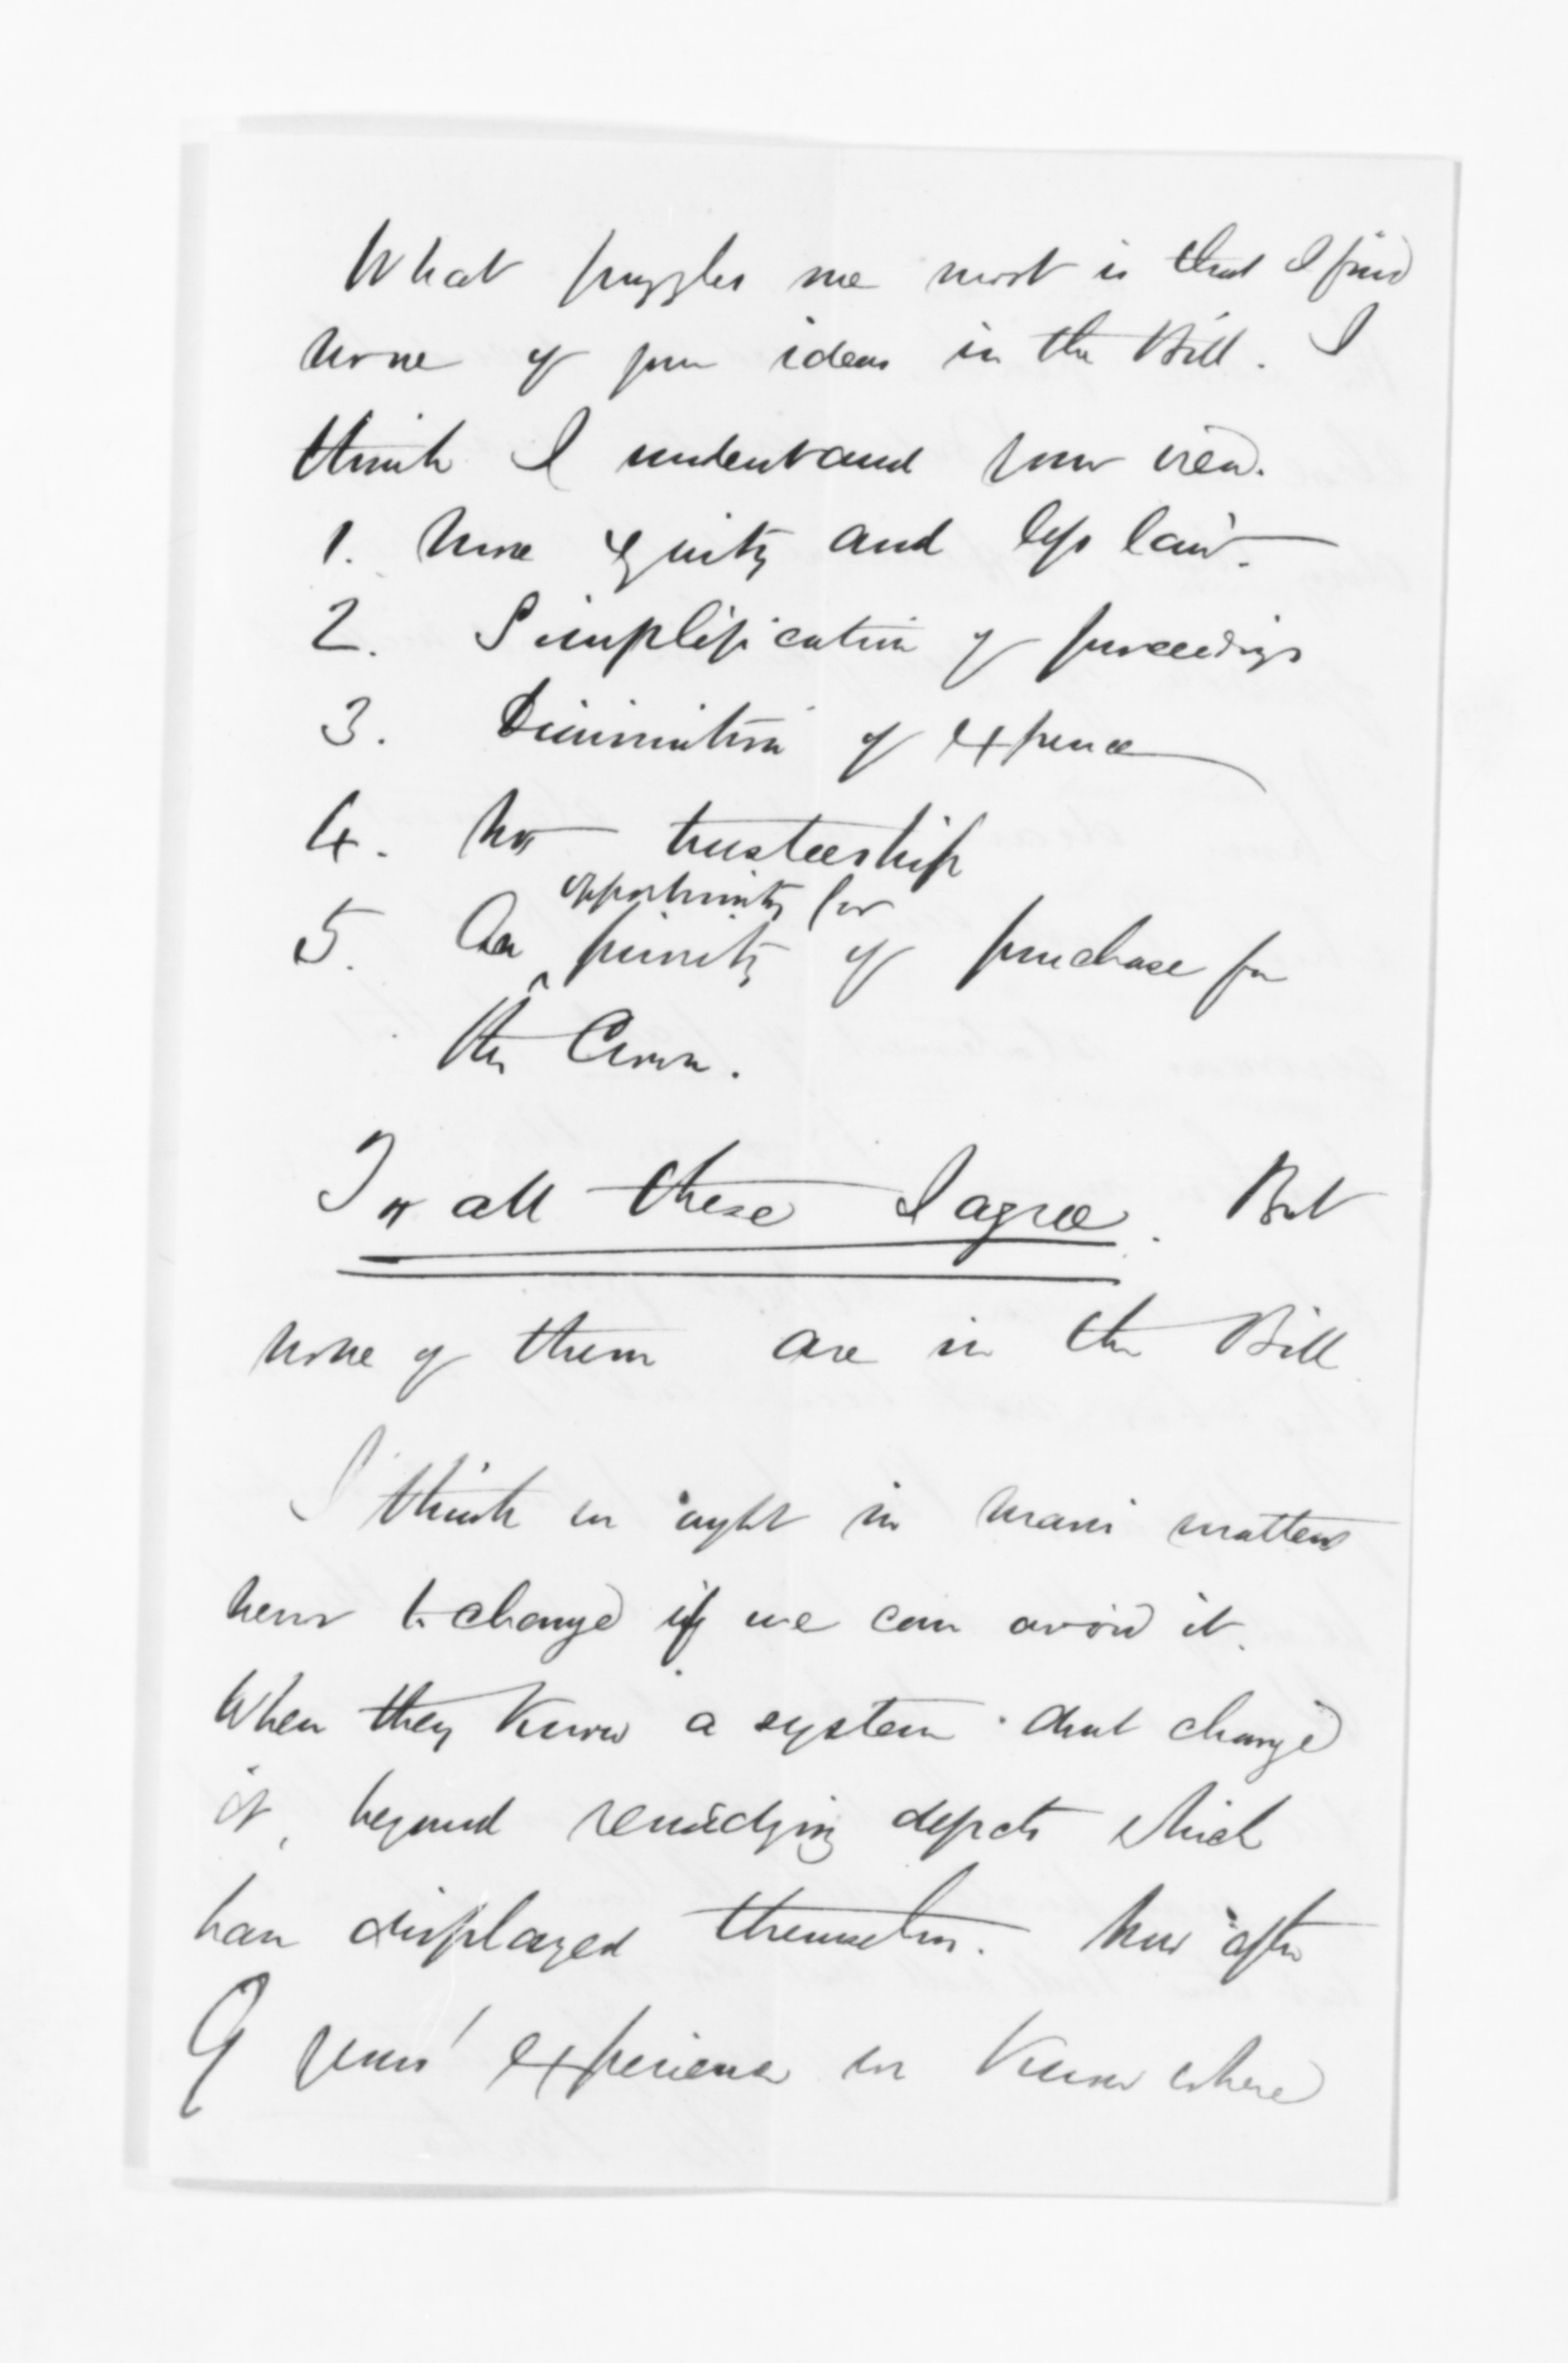 What puzzles me most is that I find
none of your ideas in the Bill. I
think I understand your view.
1. More equity and less law.
2. Simplification of proceedings
3. Diminution of expence
4. No trusteeship
opportunity for
5. An priority of purchase for
the Crown.
To all these I agree. But
none of them are in the Bill
I think we ought in Maori matters
never to change if we can avoid it.
When they know a system dont change
it, beyond remedying defects which
have displayed themselves. Now after
9 years' experience we know where